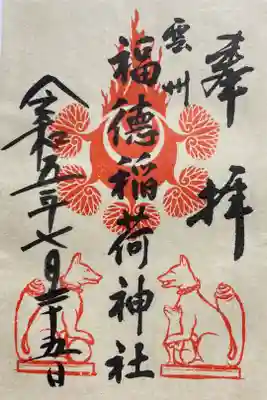 奉拝
雲州
福徳稲荷神社
令和五年七月二十五日